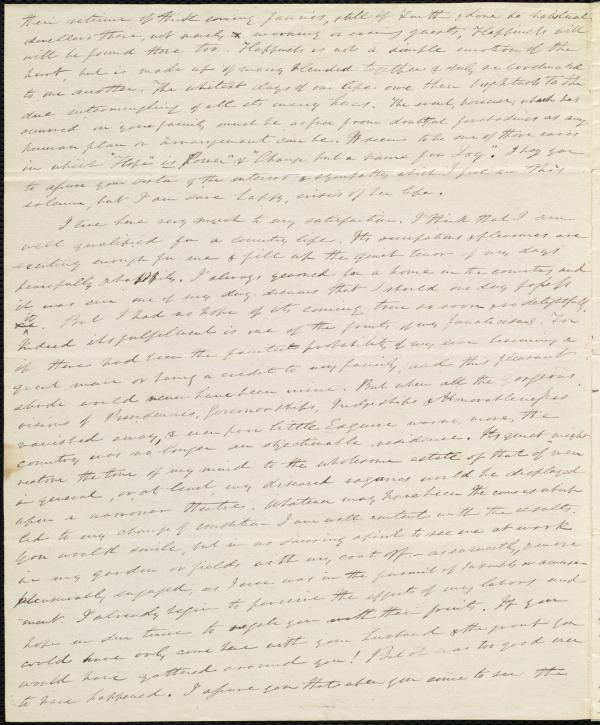 their retinue of thick coming fancies, still if Truth & Love be habitual
dwellers there, not merely x morning or evening guests, Happiness will
will be found there too. Happiness is not a simple emotion of the
heart, but is made up of many blended together & duly subordinated
to one another. The whitest days of our life owe their brightness to the
due intermingling of all its many hues. The event, however, which has
occurred in your family must be as free from doubtful forebodings as any
human plan or arrangement can be. It seems to be one of those cases
in which "Hope is Power" & "Change but a name for Joy". I beg you
to assure your sister of the interest & sympathy which I feel in this
solemn, but I am sure happy, crisis of her life.
I live here very much to my satisfaction. I think that I am
well qualified for a country life. Its occupations & pleasures are
exciting enough for me & fill up the quiet tenor of my days
peacefully & happily. I always yearned for a home in the country and
it was ever one of my day dreams that I should one day possess
it. But I had no hope of its coming true so soon & so delightfully.
Indeed its fulfilment is one of the fruits of my fanaticism. For
if there had been the faintest probability of my ever becoming a
great man or being a credit to my family, and this pleasant
abode would never have been mine. But when all the gorgeous
visions of Presidencies, Governorships, Judgeships & Honorablenesses
vanished away, & even poor little Esquire was no more, the
country was no longer an objectionable residence. Its quiet might
restore the tone of my mind to the wholesome estate of that of men
in general, or, at least my diseased vagaries would be displayed
upon a narrower theatre. Whatever may have been the causes which
led to my change of condition I am well content with the results.
You would smile, but in no sneering spirit to see me at work
in my garden or fields with my coat off – as earnestly, & more
pleasurably engaged, as I ever was in the pursuit of business or amuse-
ment. I already begin to perceive the effects of my labors and
hope in due time to regale you with their fruits. If you
could have only come here with your husband & the group you
would have gathered around you! But it was too good ever
to have happened. I assure you that when you come to see the